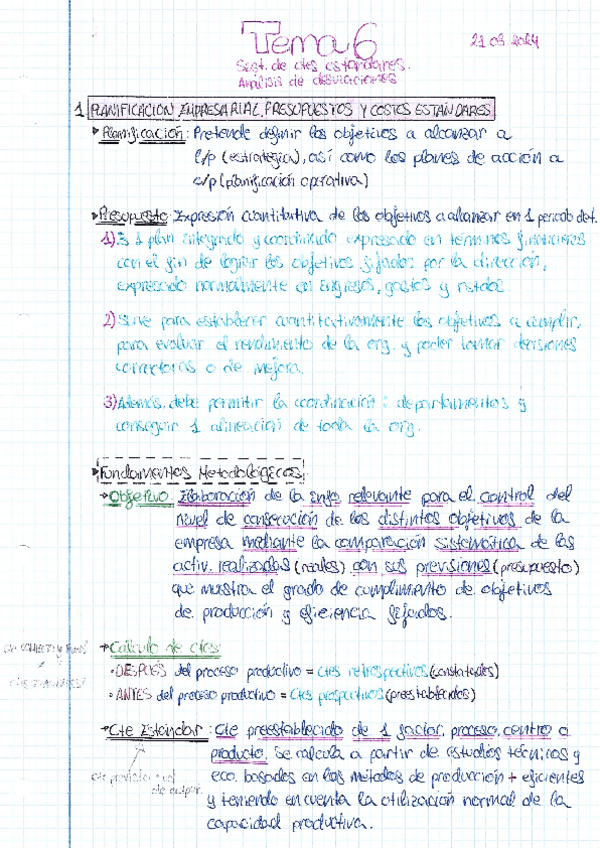 Tema 6
21 03 2024
Sist. de ctes estandares.
Análisis de desviaciones
1 PLANIFICACION EMPRESARIAL, PRESUPUESTOS Y COSTES ESTANDARES
Planificación: Pretende definir los objetivos a alcanzar a
l/p (estrategica), así como los planes de acción a
c/p (planificación operativa)
Presupuesto: Expresión cuantitativa de los objetivos a alcanzar en 1 periodo det.
1) Es 1 plan integrado y coordinado expresado en términos financieros
con el fin de lograr los objetivos fijados por la dirección,
expresado normalmente en ingresos, gastos y rstdos
2) Sirve para establecer cuantitativamente los objetivos a cumplir,
para evaluar el rendimiento de la org. y poder tomar decisiones
correctoras o de mejora.
3) Además, debe permitir la coordinación : departamentos y
conseguir 1 alineación de toda la org.
Fundamentos Metodológicos
Objetivo: Elaboración de la info relevante para el control del
nivel de consecución de los distintos objetivos de la
empresa mediante la comparación sistemática de las
activ. realizadas (reales) con sus previsiones (presupuesto)
que muestra el grado de cumplimiento de objetivos
de producción y eficiencia fijados.
Cálculo de ctes:
DESPUÉS del proceso productivo = ctes retrospectivos (constatados)
ANTES del proceso productivo = ctes prospectivos (preestablecidos)
Cte Estándar: Cte preestablecido de 1 factor, proceso, centro o
producto. Se calcula a partir de estudios técnicos y
eco. basados en los métodos de producción + eficientes
y teniendo en cuenta la utilización normal de la
capacidad productiva.